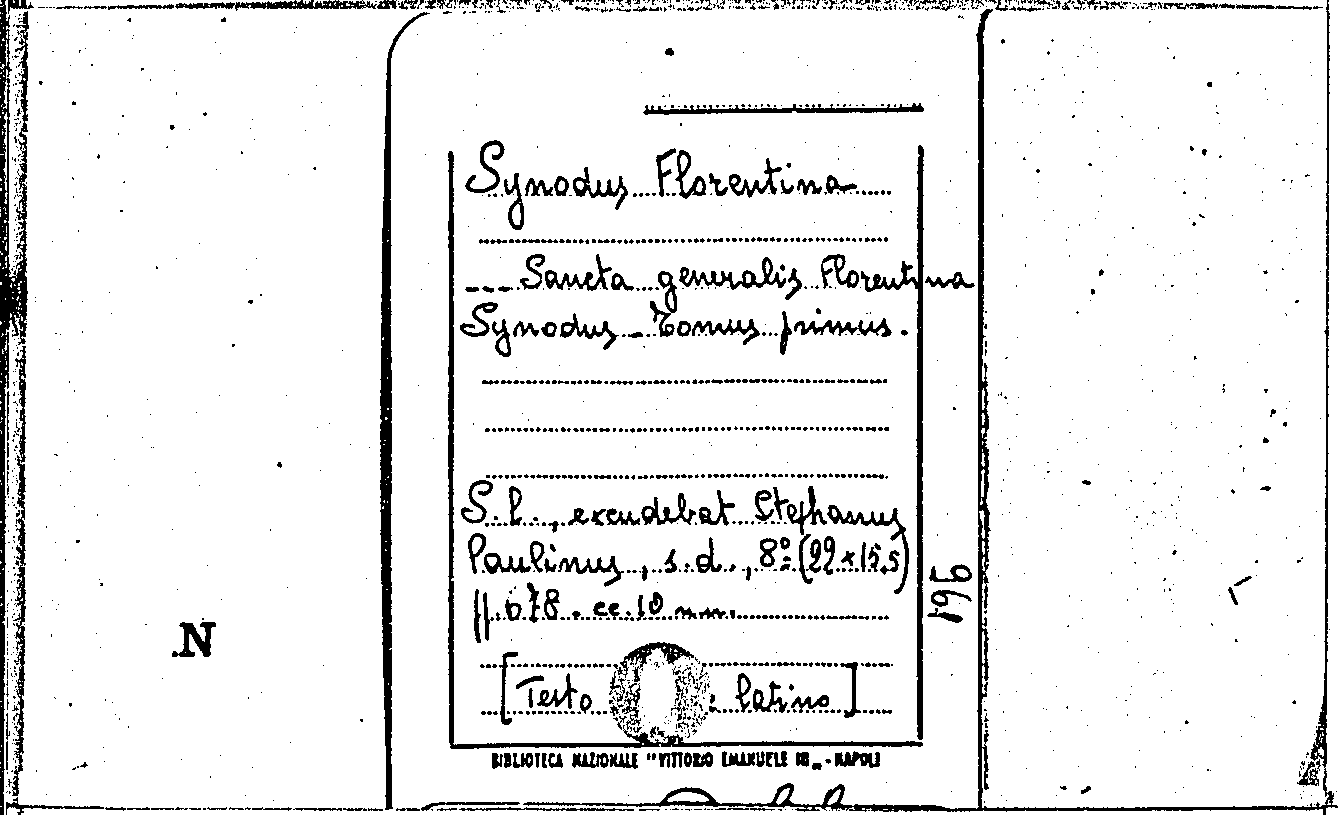 Synodus Florentina
--- Sancta generalis Florentina
Synodus - Tomus primus.
S. l., excudebat Stephanus
Paulinus, s. d., 8º (22 x 15,5)
pp. 678. cc. 10 nn.
[Testo latino]
196
N
BIBLIOTECA NAZIONALE "VITTORIO EMANUELE III„ - NAPOLI